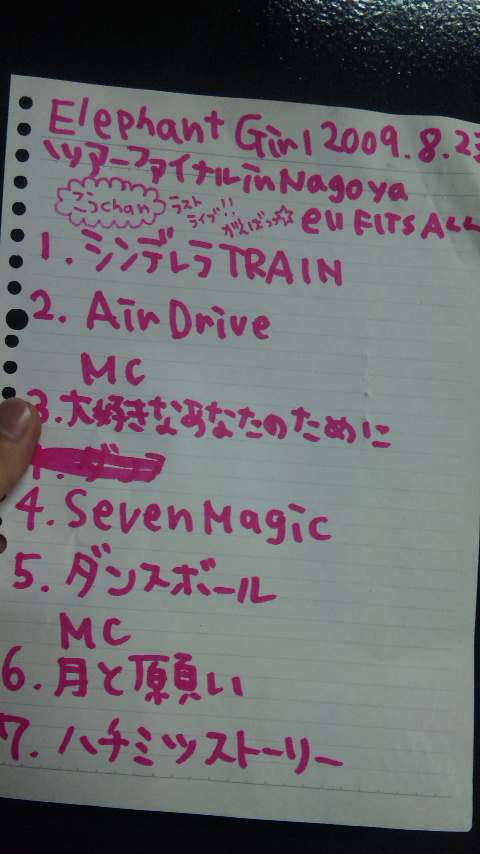 Elephant Girl 2009.8.23
ツアーファイナル in Nagoya
こうchan ラストライブ!! がんばっ☆ ell FITS ALL
1. シンデレラTRAIN
2. Air Drive
MC
3. 大好きなあなたのために
4. Seven Magic
5. ダンスボール
MC
6. 月と願い
7. ハチミツストーリー